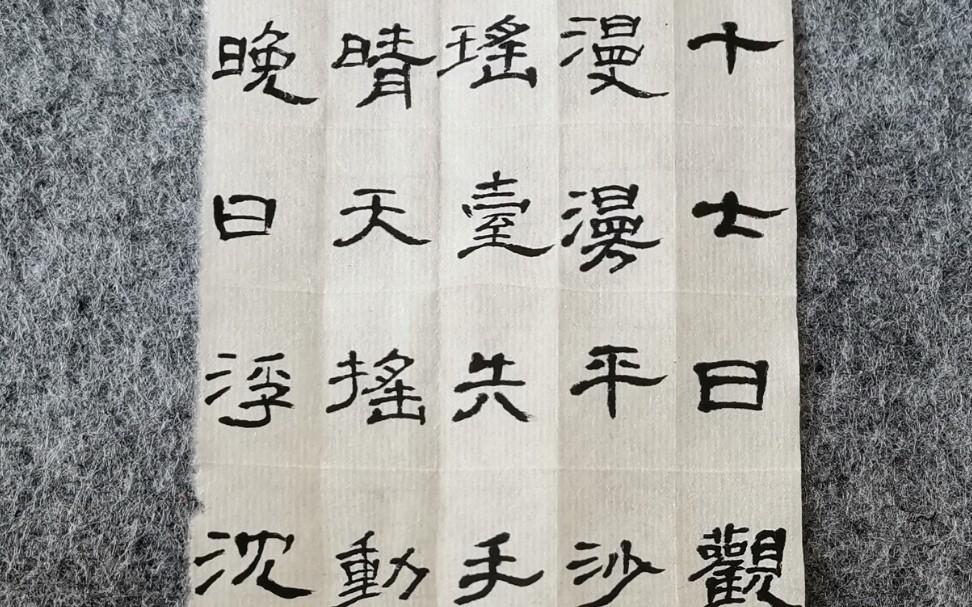 十七日觀
漫漫平沙
瑤臺失手
晴天搖動
晚日浮沈